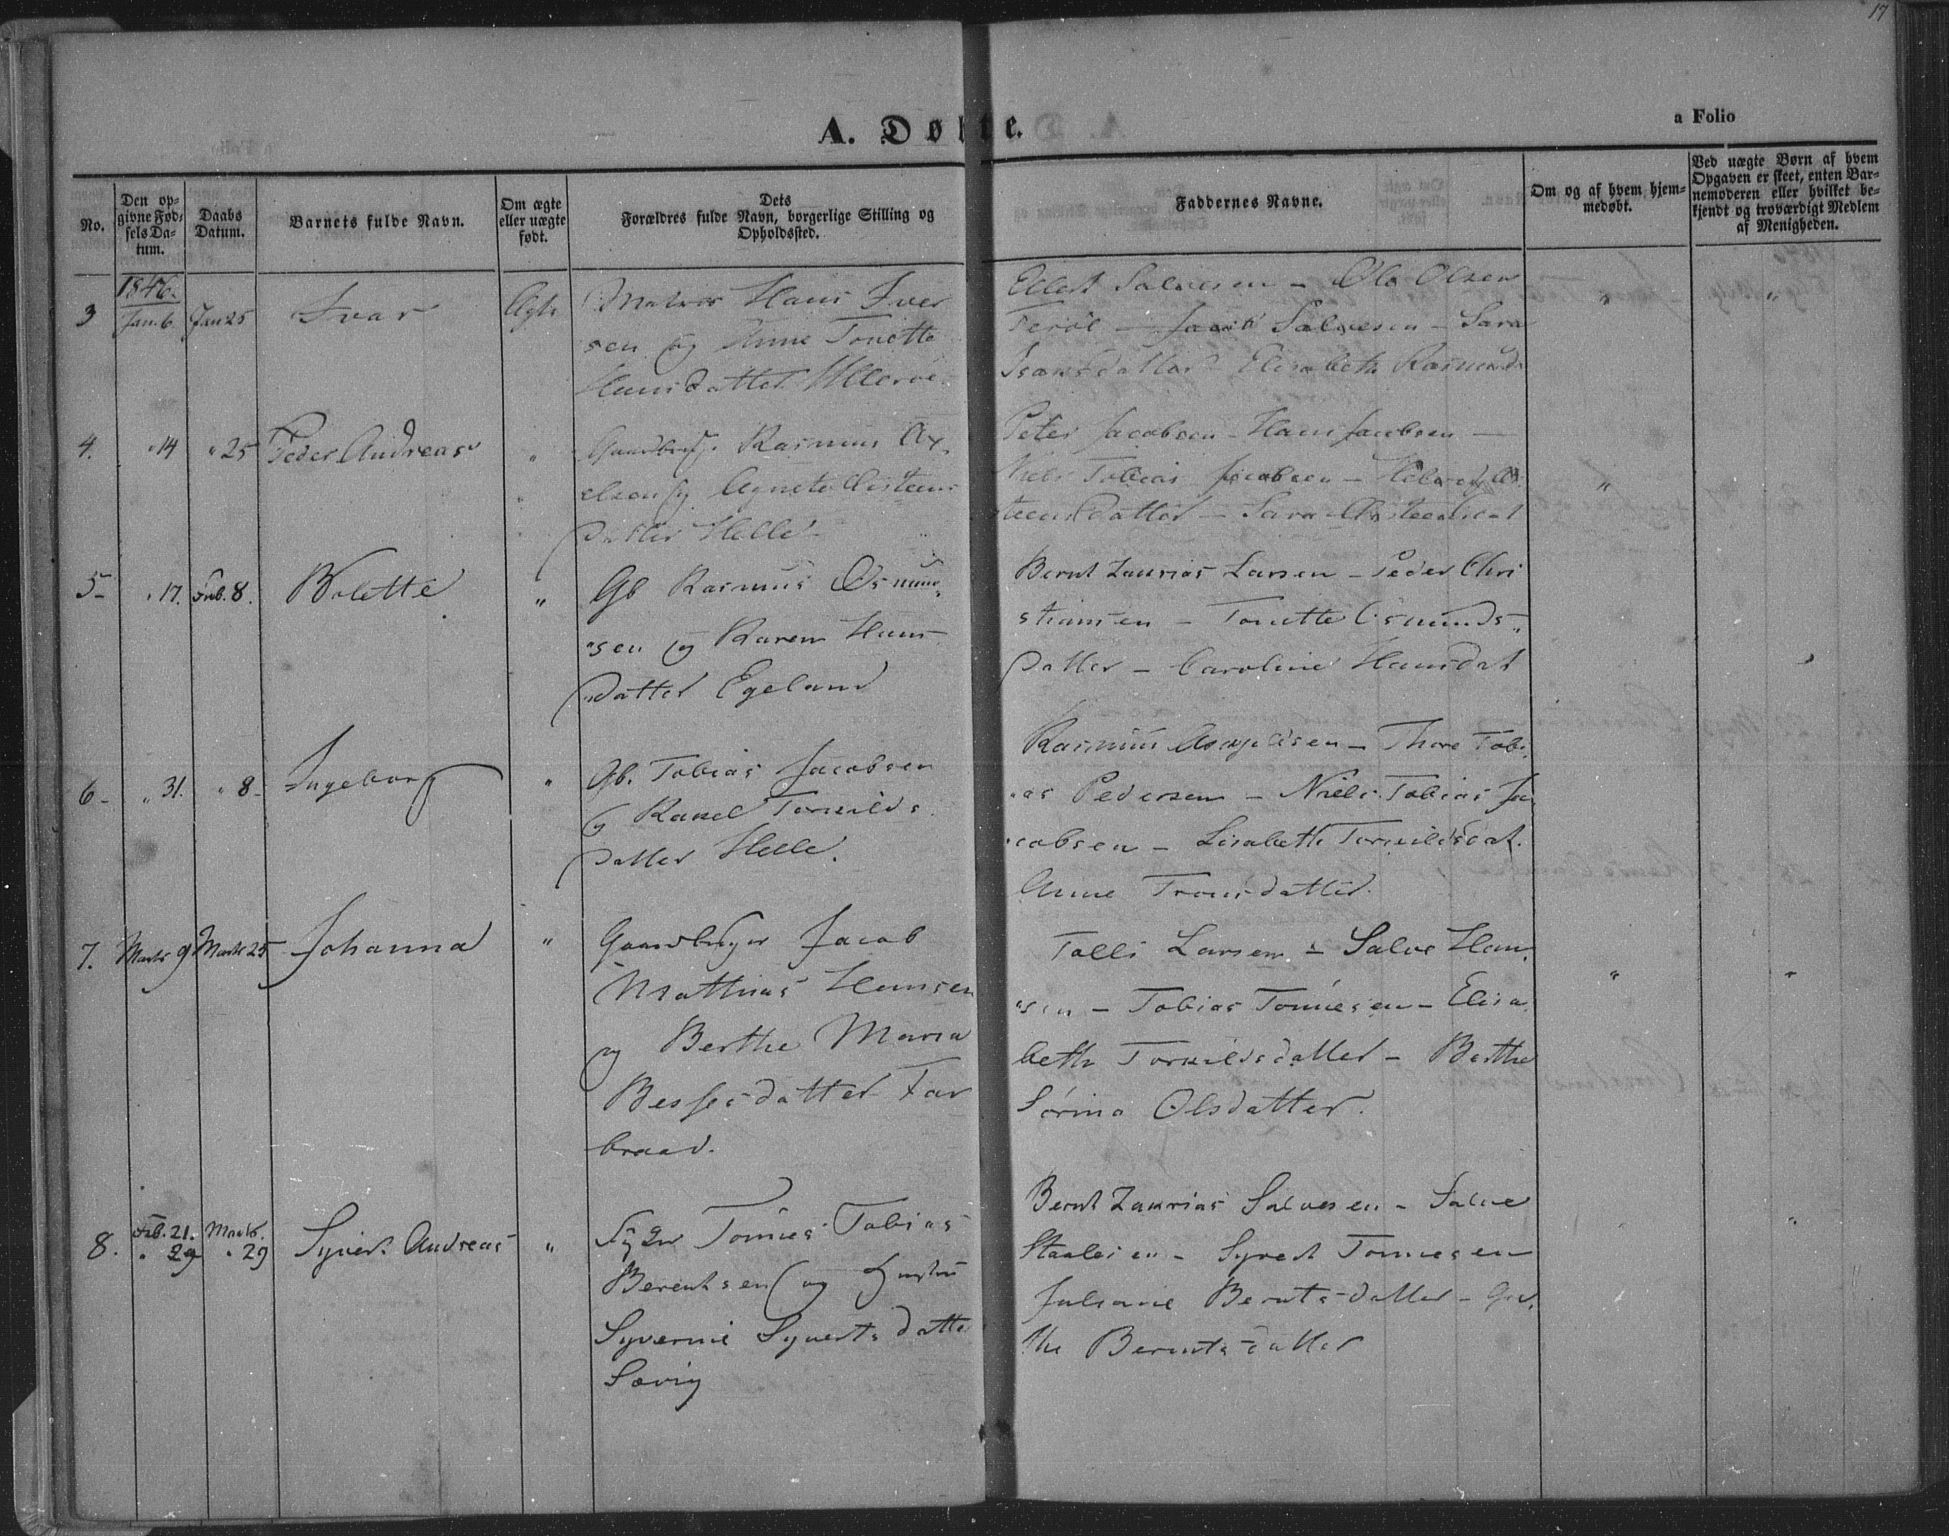 17
A. Døbte.
a Folio
No.
Den op-
givne Fød-
sels Da-
tum.
Daabs
Datum.
Barnets fulde Navn.
Om ægte
eller uægte
født.
Dets
Forældres fulde Navn, borgerlige Stilling og
Opholdssted.
Faddernes Navne.
Om og af hvem hjem-
medøbt.
Ved uægte Børn af hvem
Opgaven er skeet, enten Bar-
nemoderen eller hvilket be-
kjendt og troværdigt Medlem
af Menigheden.
1846.
3 Jan. 6 Jan 25 Ivar Ægte Matros Hans Iver
sen og Anne Tonette
Hansdatter Ullerøe
Eilert Salvesen - Ole Olsen
Terøe - Jacob Salvesen - Sara
Isaksdatter Elisabeth Rasmusd
" "
4. " 14 " 25 Peder Andreas " Gaardbrug. Rasmus Ax
elsen og Agnete Aasteens
datter Helle
Peter Jacobsen - Hans Jacobsen -
Niels Tobias Jacobsen -
teensdatter - Sara Aasteensdat
"
5- " 17. Feb. 8. Bolette " Gb Rasmus Osmun
sen og Karen Hans
datter Egeland
Bernt Zakrias Larsen - Peder Chri
stiansen - Tonette Osmunds
datter - Caroline Hansdat
6- " 31. " 8- Ingeborg " Gb. Tobias Jacobsen
og Rakel Torkilds
datter Helle.
Rasmus - Thore Tobi
as Pedersen - Niels Tobias Ja
cobsen - Lisabeth Torkildsdat.
Anne Tronsdatter.
7. Marts 9 Marts 25 Johanna " Gaardbruger Jacob
Mathias Hansen
og Berthe Maria
Bessesdatter Far
braad.
Tolli Larsen - Salve Han
sen - Tobias Tønnesen - Elisa
beth Torkildsdatter - Berthe
Sørine Olsdatter.
" "
8. Feb. 21. Marts.
" 29 " 29 Syvert Andreas " Tønnes Tobias
Berentsen og Hustru
Syverine Syvertsdatter
Sævig
Bernt Zakrias Salvesen - Salve
Staalesen - Syvert Tønnesen
Juliane Berntsdatter - Gru
the Berentsdatter
"